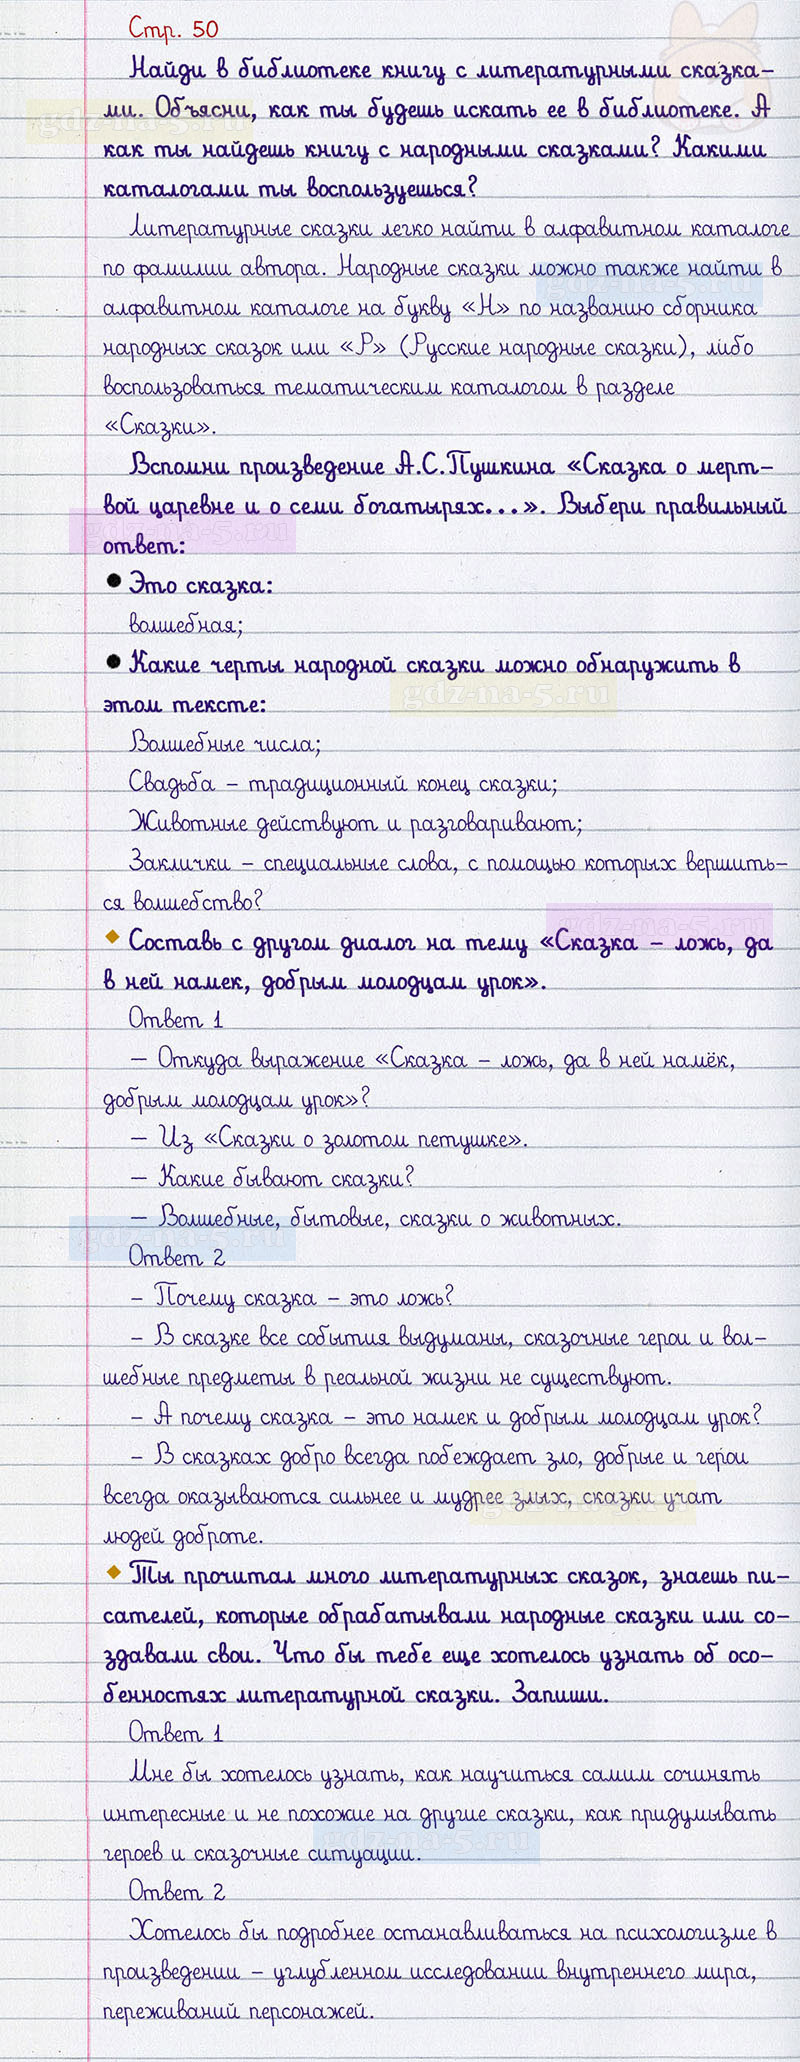 Стр. 50
Найди в библиотеке книгу с литературными сказка-
ми. Объясни, как ты будешь искать ее в библиотеке. А
как ты найдешь книгу с народными сказками? Какими
каталогами ты воспользуешься?
Литературные сказки легко найти в алфавитном каталоге
по фамилии автора. Народные сказки можно также найти в
алфавитном каталоге на букву «Н» по названию сборника
народных сказок или «Р» (Русские народные сказки), либо
воспользоваться тематическим каталогом в разделе
«Сказки».
Вспомни произведение А.С.Пушкина «Сказка о мерт-
вой царевне и о семи богатырях...». Выбери правильный
ответ:
● Это сказка:
волшебная;
● Какие черты народной сказки можно обнаружить в
этом тексте:
Волшебные числа;
Свадьба – традиционный конец сказки;
Животные действуют и разговаривают;
Заклички – специальные слова, с помощью которых вершить-
ся волшебство?
◆ Составь с другом диалог на тему «Сказка – ложь, да
в ней намек, добрым молодцам урок».
Ответ 1
– Откуда выражение «Сказка – ложь, да в ней намёк,
добрым молодцам урок»?
– Из «Сказки о золотом петушке».
– Какие бывают сказки?
– Волшебные, бытовые, сказки о животных.
Ответ 2
– Почему сказка – это ложь?
– В сказке все события выдуманы, сказочные герои и вол-
шебные предметы в реальной жизни не существуют.
– А почему сказка – это намек и добрым молодцам урок?
– В сказках добро всегда побеждает зло, добрые и герои
всегда оказываются сильнее и мудрее злых, сказки учат
людей доброте.
◆ Ты прочитал много литературных сказок, знаешь пи-
сателей, которые обрабатывали народные сказки или со-
здавали свои. Что бы тебе еще хотелось узнать об осо-
бенностях литературной сказки. Запиши.
Ответ 1
Мне бы хотелось узнать, как научиться самим сочинять
интересные и не похожие на другие сказки, как придумывать
героев и сказочные ситуации.
Ответ 2
Хотелось бы подробнее останавливаться на психологизме в
произведении – углубленном исследовании внутреннего мира,
переживаний персонажей.
gdz-na-5.ru
gdz-na-5.ru
gdz-na-5.ru
gdz-na-5.ru
gdz-na-5.ru
gdz-na-5.ru
gdz-na-5.ru
gdz-na-5.ru